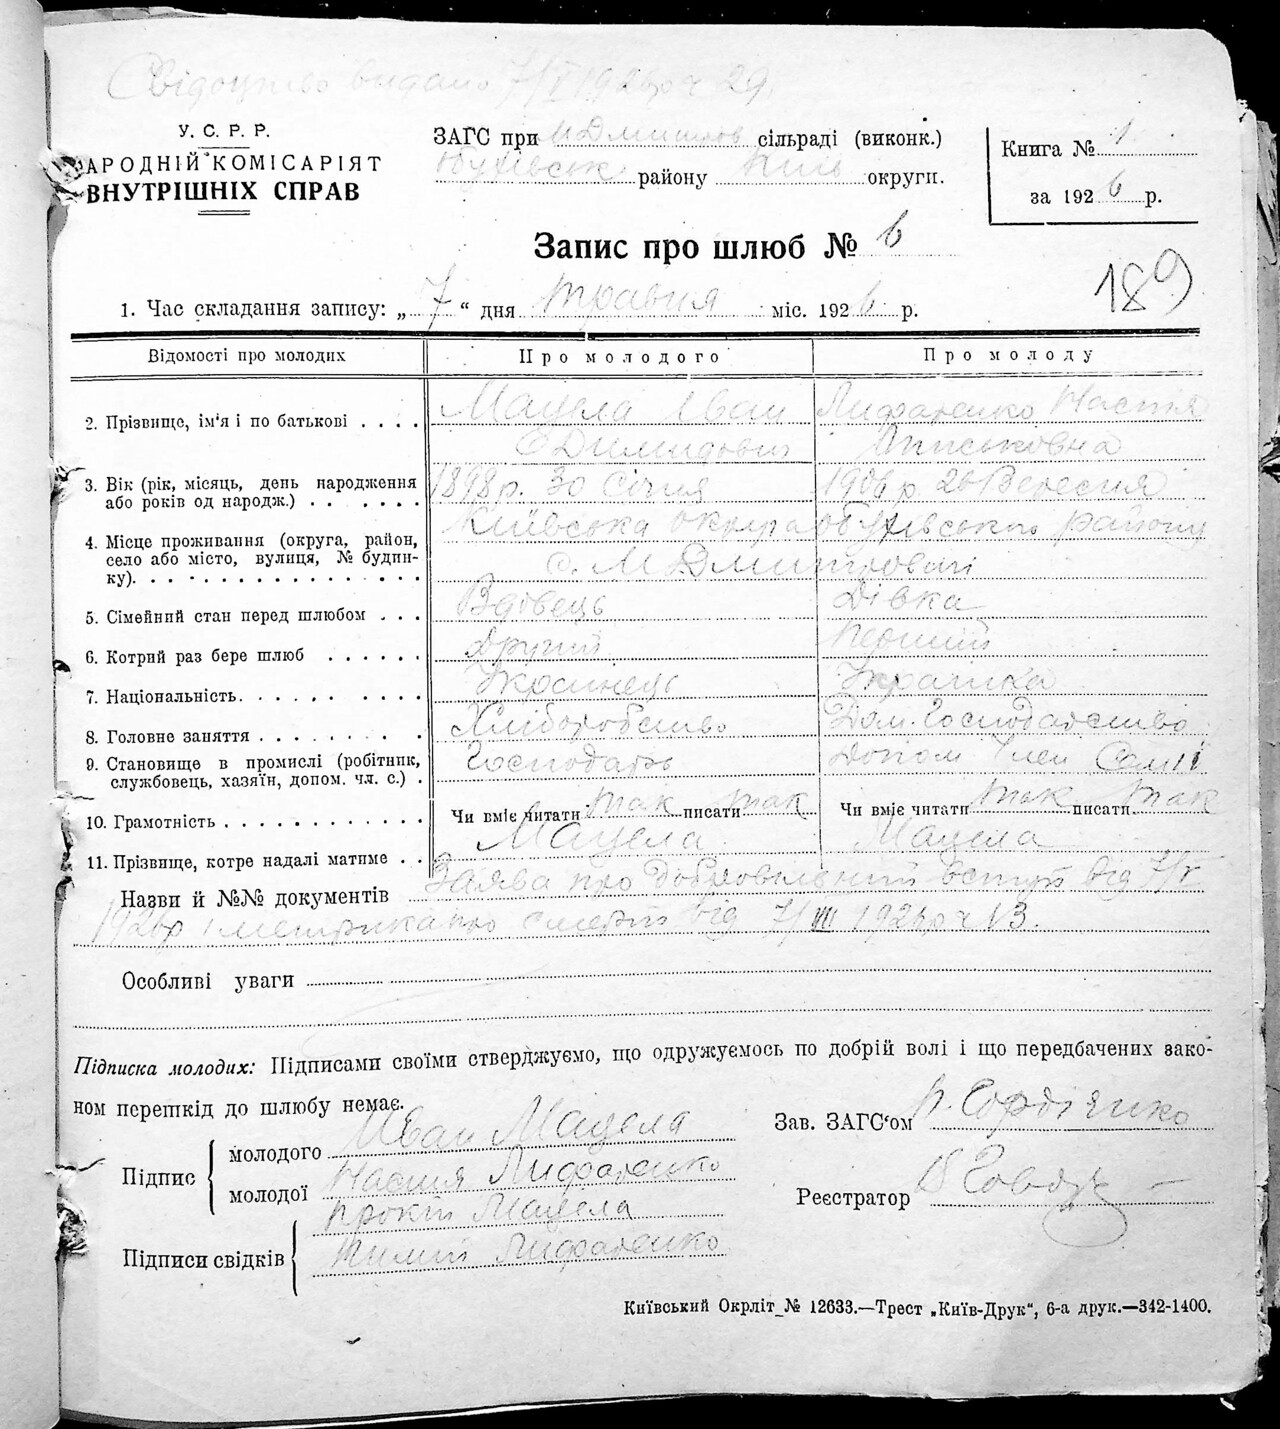 Свідоцтво видано 7/V 1926р ч 29.
У. С. Р. Р.
НАРОДНІЙ КОМІСАРІЯТ
ВНУТРІШНІХ СПРАВ
ЗАГС при сільраді (виконк.)
району Київ округи.
Книга № 1
за 1926 р.
Запис про шлюб № 6
189
1. Час складання запису: „ 7 “ дня травня міс. 1926 р.
Відомості про молодих Про молодого Про молоду
2. Прізвище, ім'я і по батькові . . . . Мацела Іван Настя
3. Вік (рік, місяць, день народження 1898 р. 30 Січня 1906 р 26 Вересня
або років од народж.) . . . . . .
4. Місце проживання (округа, район, Київська округа району
село або місто, вулиця, № будин- с. М Дмитровичі
ку). . . . . . . . . . . . . . . .
5. Сімейний стан перед шлюбом . . . Вдівець Дівка
6. Котрий раз бере шлюб . . . . . . Другий Перший
7. Національність. . . . . . . . . . Українець Українка
8. Головне заняття . . . . . . . . Хліборобство Дом. Господарство
9. Становище в промислі (робітник, Господарь Допом Член Самії
службовець, хазяїн, допом. чл. с.) .
10. Грамотність . . . . . . . . . . . . . Чи вміє читати так писати так Чи вміє читати так писати так
11. Прізвище, котре надалі матиме . . Мацела Мацела
Назви й №№ документів Заява про добровільний вступ від 7/V
1926р і метрика про смерть від 7/VIII 1926р ч 13.
Особливі уваги
Підписка молодих: Підписами своїми стверджуємо, що одружуємось по добрій волі і що передбачених зако-
ном перешкід до шлюбу немає.
Зав. ЗАГС'ом Гордієнко
Підпис
молодого Іван Мацела
молодої Настя
Реєстратор
Підписи свідків
Прокіп Мацела
Київський Окрліт_№ 12633.—Трест „Київ-Друк“, 6-а друк.—342-1400.